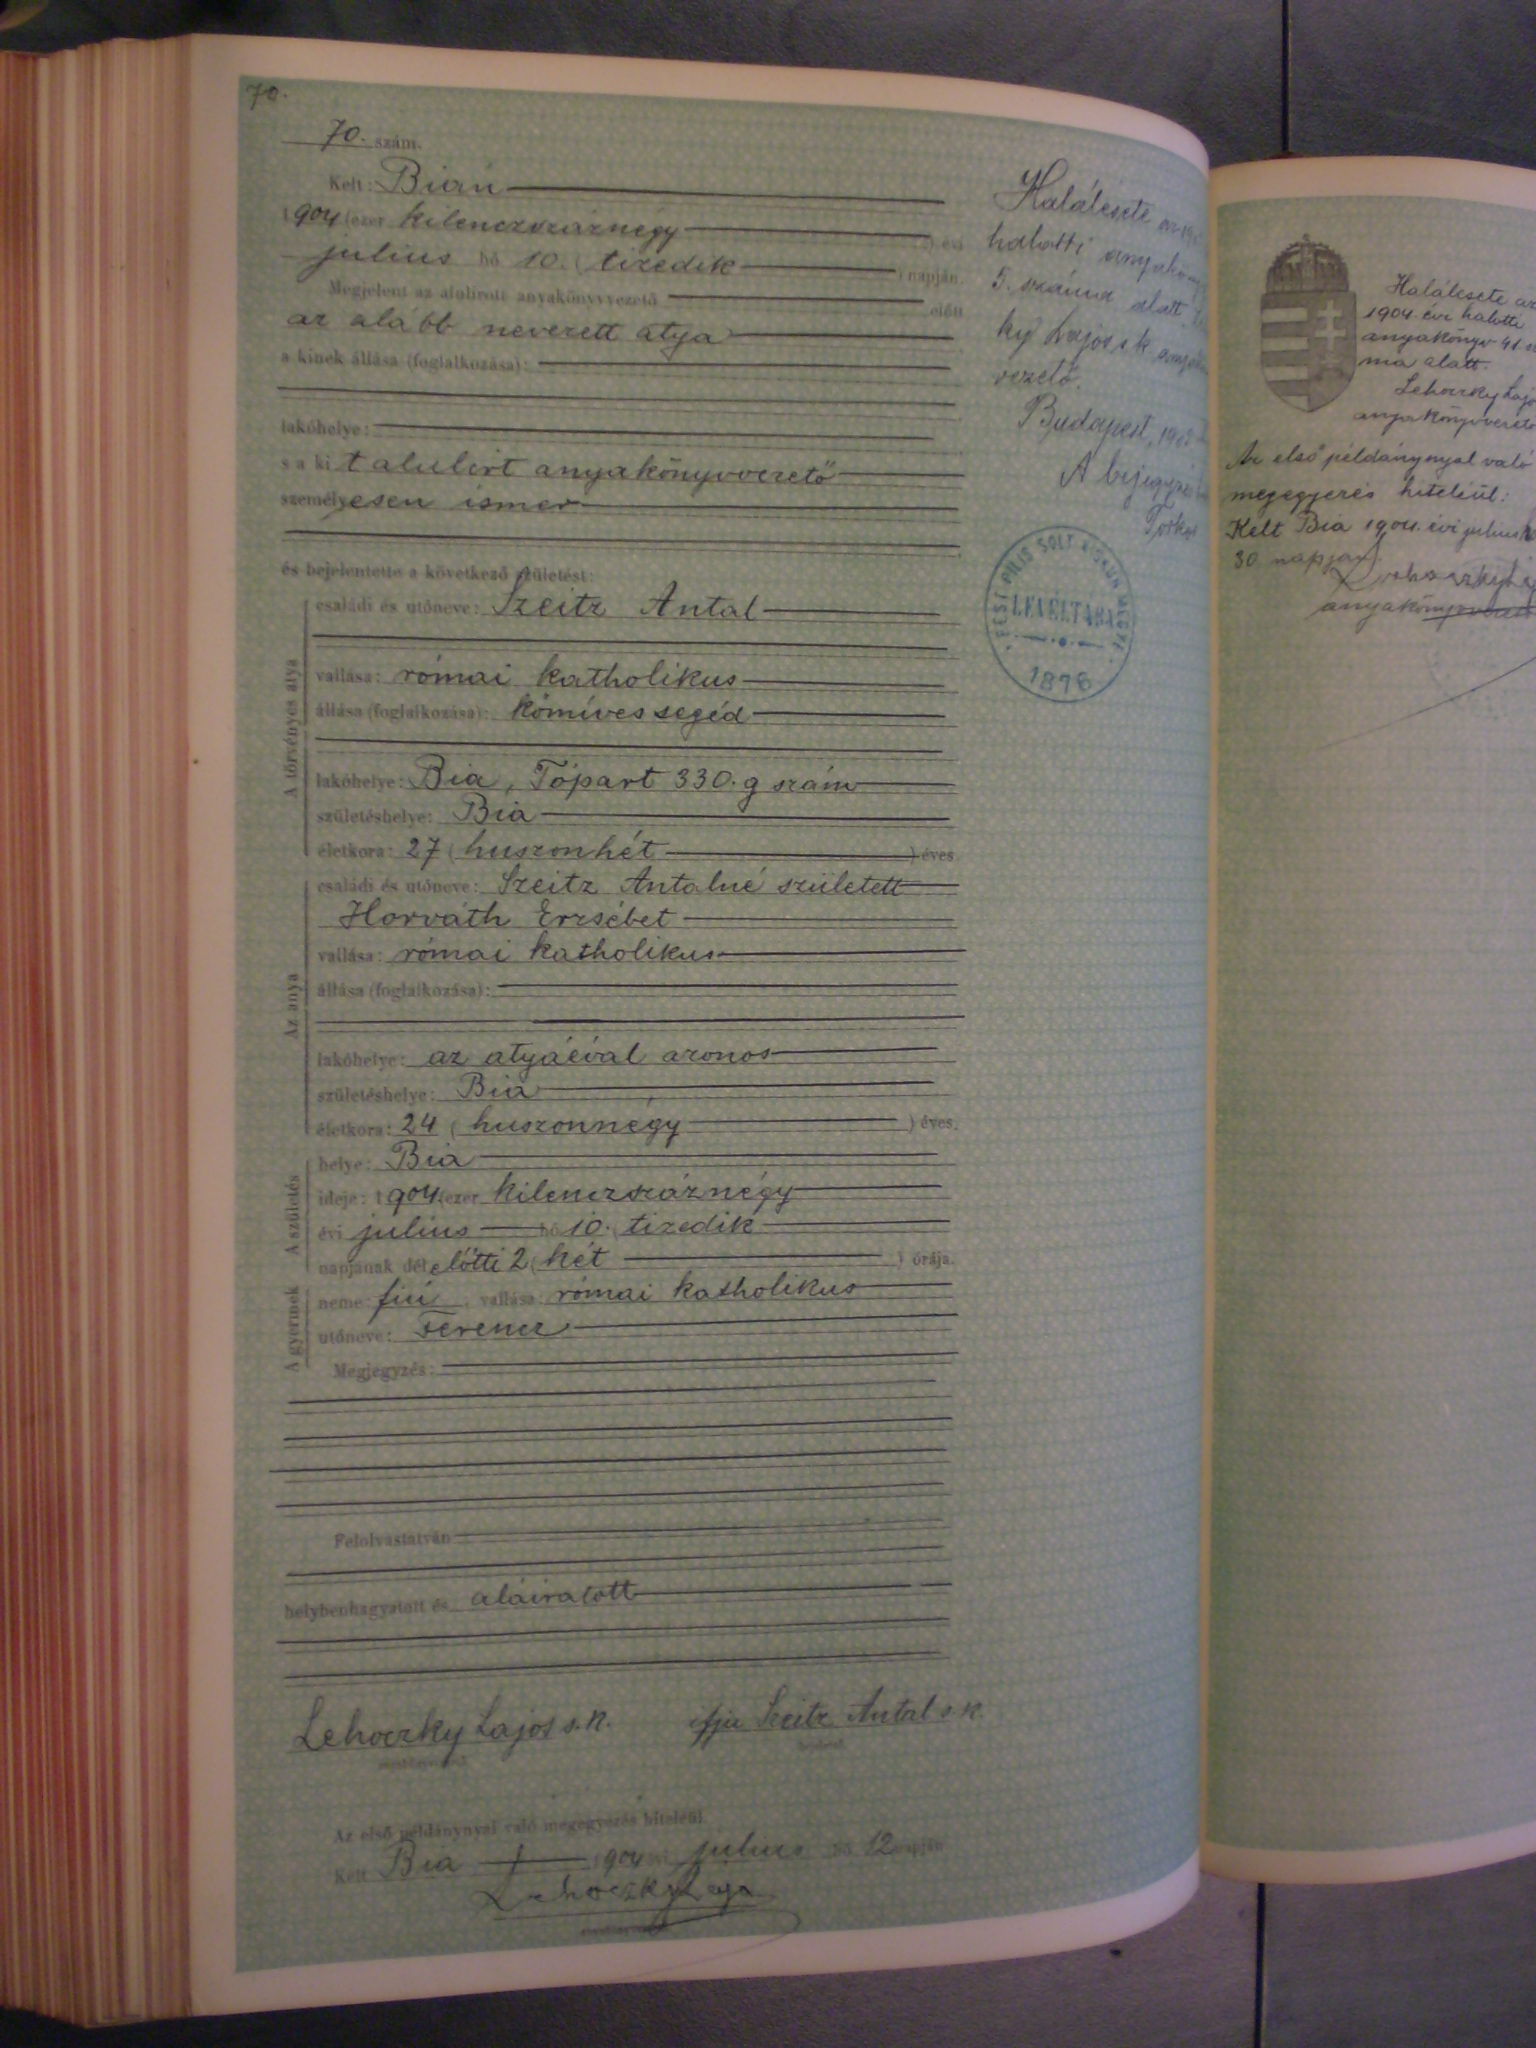 70.
70. szám.
Kelt: Bián
1904 (ezer kilenczszáznégy) évi
julius hó 10. (tizedik) napján.
Megjelent az alulirott anyakönyvvezető előtt
az alább nevezett atya
a kinek állása (foglalkozása):
lakóhelye:
s a kit alulirt anyakönyvvezető
személyesen ismer
és bejelentette a következő születést:
A törvényes atya
családi és utóneve: Szeitz Antal
vallása: római katholikus
állása (foglalkozása): kőmíves segéd
lakóhelye: Bia, Tópart 330. g szám
születéshelye: Bia
életkora: 27 (huszonhét) éves
Az anya
családi és utóneve: Szeitz Antalné született
Horváth Erzsébet
vallása: római katholikus
állása (foglalkozása):
lakóhelye: az atyáéval azonos
születéshelye: Bia
életkora: 24 (huszonnégy) éves.
A születés
helye: Bia
ideje: 1904 (ezer kilenczszáznégy
évi julius hó 10. (tizedik
napjának délelőtti 2 (két) órája.
A gyermek
neme: fiú, vallása: római katholikus
utóneve: Ferencz
Megjegyzés:
Felolvastatván
helybenhagyatott és aláiratott
Lehoczky Lajos s. k. ifju Szeitz Antal s. k.
Az első példánynyal való megegyezés hiteléül.
Kelt Bia 1904 julius hó 12 napján
Lehoczky Lajos
Halálesete az
halotti
5. száma alatt
ky Lajos s k
vezető.
Budapest,
A
PEST PILIS SOLT KISKUN MEGYE
LEVÉLTÁRA
1876
Halálesete az
1904. évi halotti
anyakönyv 41.
ma alatt.
Lehoczky
anyakönyvvezető
Az első példánynyal való
megegyezés hiteléül:
Kelt Bia 1904. évi julius
30 napján.
anyakönyvvezető